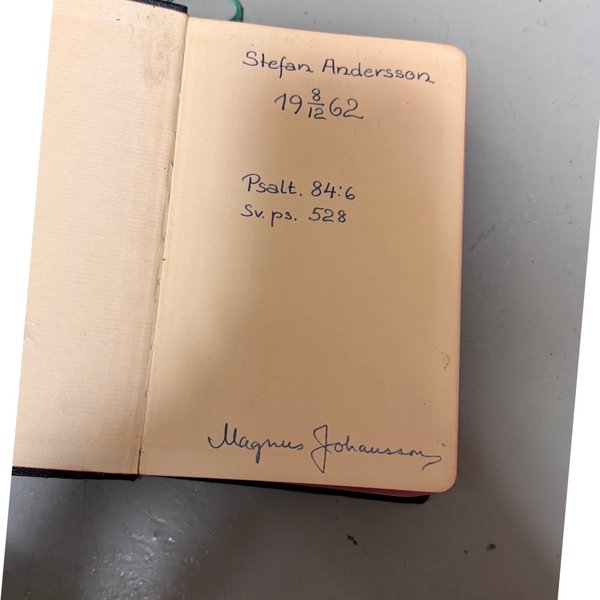 Stefan Andersson
19 8/12 62
Psalt. 84:6
Sv. ps. 528
Magnus Johansson